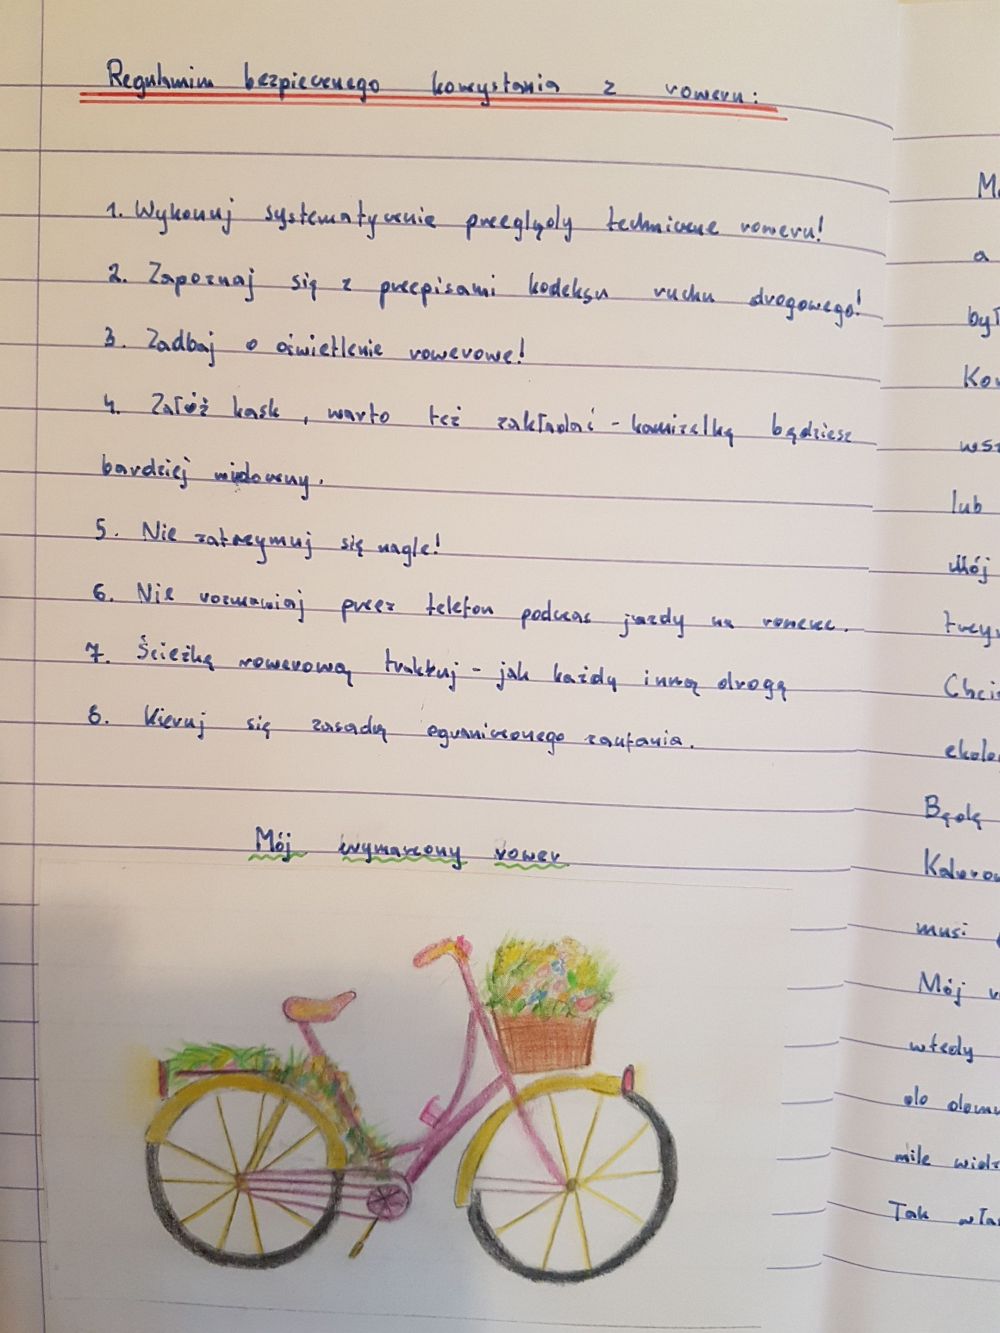 Regulamin bezpiecznego korzystania z roweru:
1. Wykonuj systematycznie przeglądy techniczne roweru!
2. Zapoznaj się z przepisami kodeksu ruchu drogowego!
3. Zadbaj o oświetlenie rowerowe!
4. Załóż kask, warto też zakładać - kamizelką będziesz
bardziej widoczny.
5. Nie zatrzymuj się nagle!
6. Nie rozmawiaj przez telefon podczas jazdy na rowerze.
7. Ścieżką rowerową traktuj - jak każdą inną drogą
8. Kieruj się zasadą ograniczonego zaufania.
Mój wymarzony rower
a
był
lub
Mój
Będę
musi
Mój
wtedy
do
mile
Tak